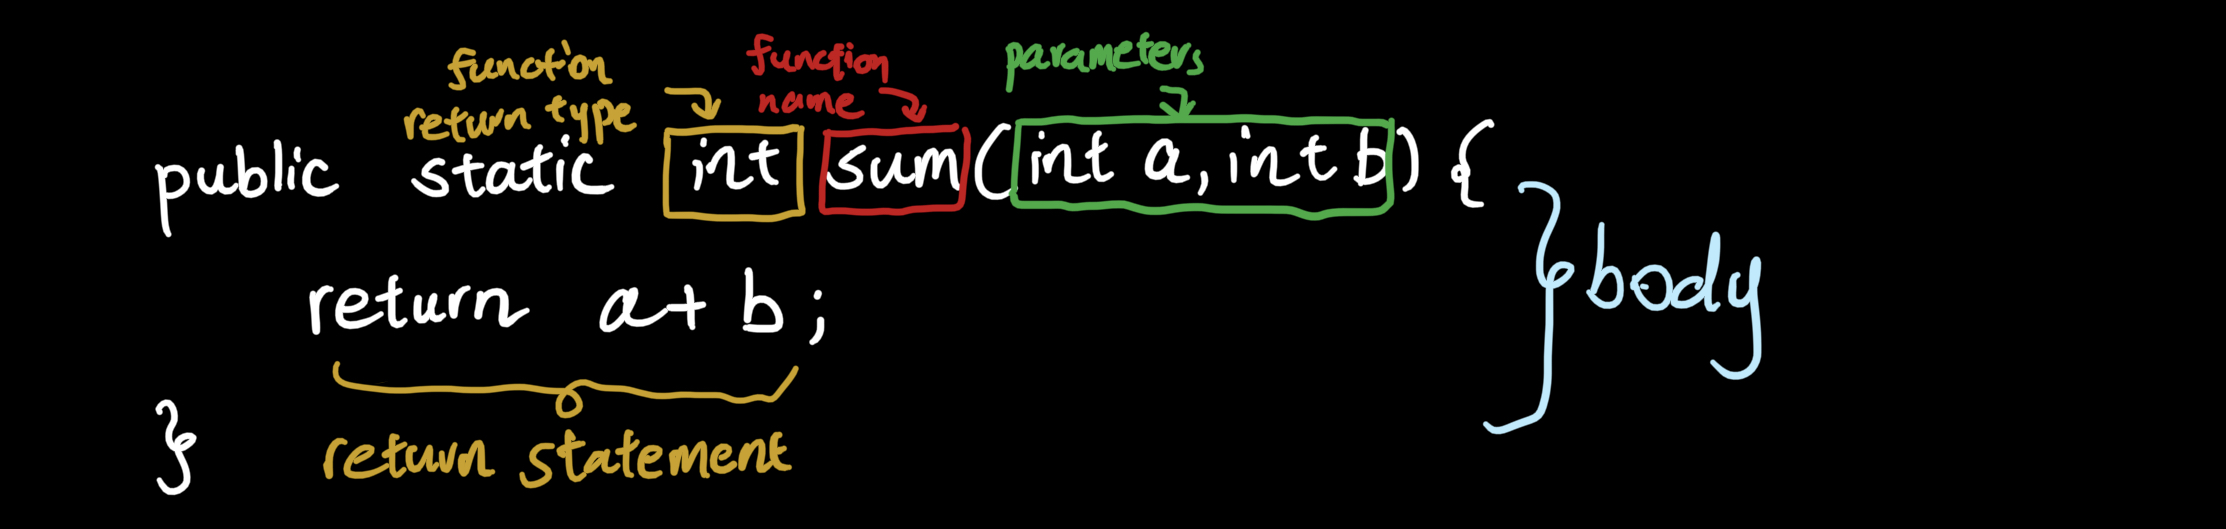 function
return type
function
name
parameters
public static int sum(int a, int b) {
body
return a + b;
}
return statement